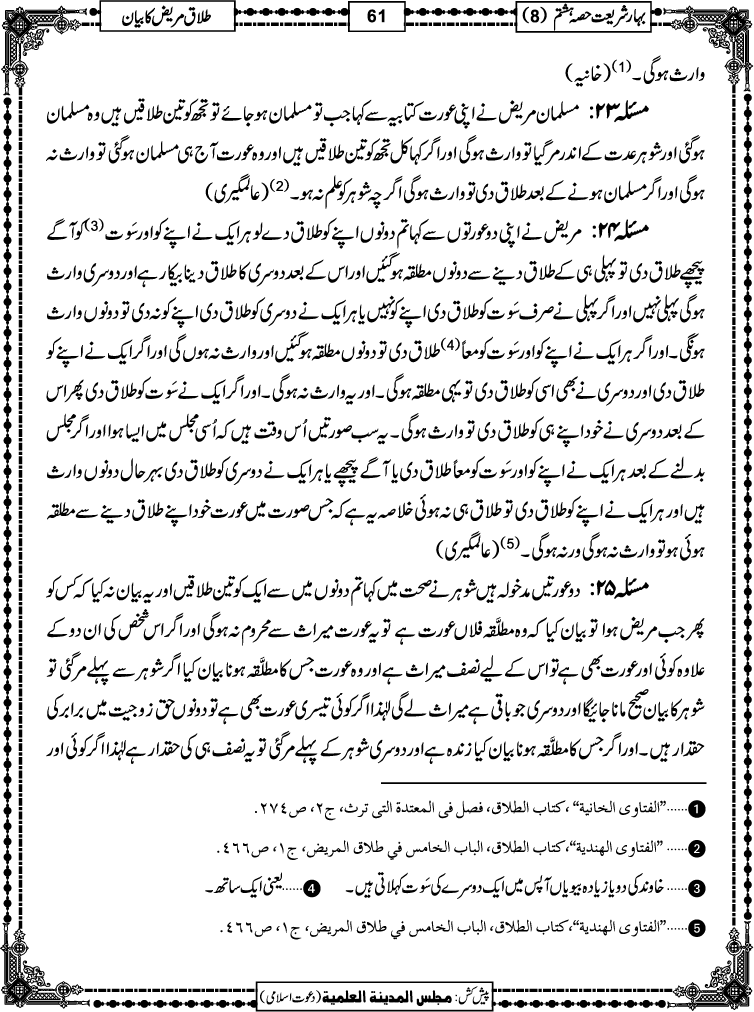 بہار شریعت حصہ ہشتم (8)
61
طلاق مریض کا بیان
وارث ہوگی۔(1) (خانیہ)
مسئلہ ۲۳: مسلمان مریض نے اپنی عورت کتابیہ سے کہا جب تو مسلمان ہو جائے تو تجھ کو تین طلاقیں ہیں وہ مسلمان
ہوگئی اور شوہر عدت کے اندر مر گیا تو وارث ہوگی اور اگر کہا کل تجھ کو تین طلاقیں ہیں اور وہ عورت آج ہی مسلمان ہوگئی تو وارث نہ
ہوگی اور اگر مسلمان ہونے کے بعد طلاق دی تو وارث ہوگی اگرچہ شوہر کو علم نہ ہو۔(2) (عالمگیری)
مسئلہ ۲۴: مریض نے اپنی دو عورتوں سے کہا تم دونوں اپنے کو طلاق دے لو ہر ایک نے اپنے کو اور سَوت(3) کو آگے
پیچھے طلاق دی تو پہلی ہی کے طلاق دینے سے دونوں مطلقہ ہوگئیں اور اس کے بعد دوسری کا طلاق دینا بیکار ہے اور دوسری وارث
ہوگی پہلی نہیں اور اگر پہلی نے صرف سَوت کو طلاق دی اپنے کو نہیں یا ہر ایک نے دوسری کو طلاق دی اپنے کو نہ دی تو دونوں وارث
ہونگی۔ اور اگر ہر ایک نے اپنے کو اور سَوت کو معاً(4) طلاق دی تو دونوں مطلقہ ہوگئیں اور وارث نہ ہوں گی اور اگر ایک نے اپنے کو
طلاق دی اور دوسری نے بھی اسی کو طلاق دی تو یہی مطلقہ ہوگی۔ اور یہ وارث نہ ہوگی۔ اور اگر ایک نے سَوت کو طلاق دی پھر اس
کے بعد دوسری نے خود اپنے ہی کو طلاق دی تو وارث ہوگی۔ یہ سب صورتیں اُس وقت ہیں کہ اُسی مجلس میں ایسا ہوا اور اگر مجلس
بدلنے کے بعد ہر ایک نے اپنے کو اور سَوت کو معاً طلاق دی یا آگے پیچھے یا ہر ایک نے دوسری کو طلاق دی بہرحال دونوں وارث
ہیں اور ہر ایک نے اپنے کو طلاق دی تو طلاق ہی نہ ہوئی خلاصہ یہ ہے کہ جس صورت میں عورت خود اپنے طلاق دینے سے مطلقہ
ہوئی ہو تو وارث نہ ہوگی ورنہ ہوگی۔(5) (عالمگیری)
مسئلہ ۲۵: دو عورتیں مدخولہ ہیں شوہر نے صحت میں کہا تم دونوں میں سے ایک کو تین طلاقیں اور یہ بیان نہ کیا کہ کس کو
پھر جب مریض ہوا تو بیان کیا کہ وہ مطلَّقہ فلاں عورت ہے تو یہ عورت میراث سے محروم نہ ہوگی اور اگر اس شخص کی ان دو کے
علاوہ کوئی اور عورت بھی ہے تو اس کے لیے نصف میراث ہے اور وہ عورت جس کا مطلَّقہ ہونا بیان کیا اگر شوہر سے پہلے مر گئی تو
شوہر کا بیان صحیح مانا جائیگا اور دوسری جو باقی ہے میراث لے گی لہٰذا اگر کوئی تیسری عورت بھی ہے تو دونوں حق زوجیت میں برابر کی
حقدار ہیں۔ اور اگر جس کا مطلَّقہ ہونا بیان کیا زندہ ہے اور دوسری شوہر کے پہلے مر گئی تو یہ نصف ہی کی حقدار ہے لہٰذا اگر کوئی اور
1......"الفتاوی الخانیة"،کتاب الطلاق، فصل فی المعتدة التی ترث، ج۲، ص۲۷٤.
2......"الفتاوی الهندیة"،کتاب الطلاق، الباب الخامس في طلاق المریض، ج۱، ص٤٦٦.
3...... خاوند کی دو یا زیادہ بیویاں آپس میں ایک دوسرے کی سَوت کہلاتی ہیں۔ 4......یعنی ایک ساتھ۔
5......"الفتاوی الهندیة"،کتاب الطلاق، الباب الخامس في طلاق المریض، ج۱، ص٤٦٦.
پیش کش: مجلس المدینة العلمیة (دعوت اسلامی)